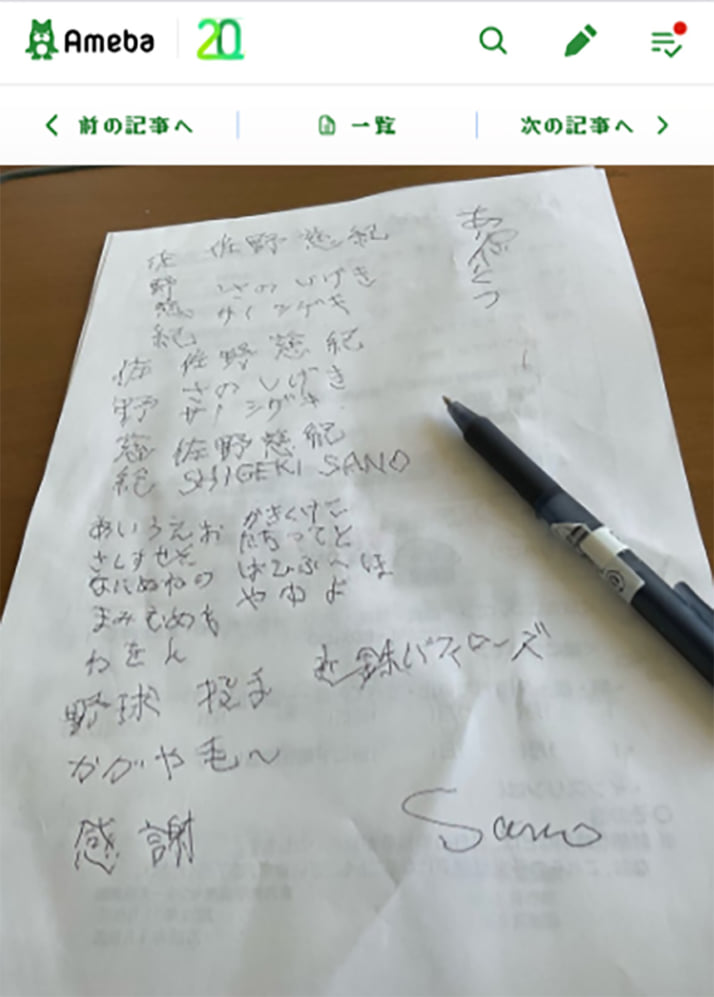 Ameba 20
前の記事へ 一覧 次の記事へ
ありがとう
佐 佐野慈紀
野 さのしげき
慈 サノシゲキ
紀
佐 佐野慈紀
野 さのしげき
サノシゲキ
慈 佐野慈紀
紀 SHIGEKI SANO
あいうえお かきくけこ
さしすせそ たちつてと
なにぬねの はひふへほ
まみむめも やゆよ
わをん
野球 投手 近鉄バファローズ
かがや毛〜
感謝
Sano